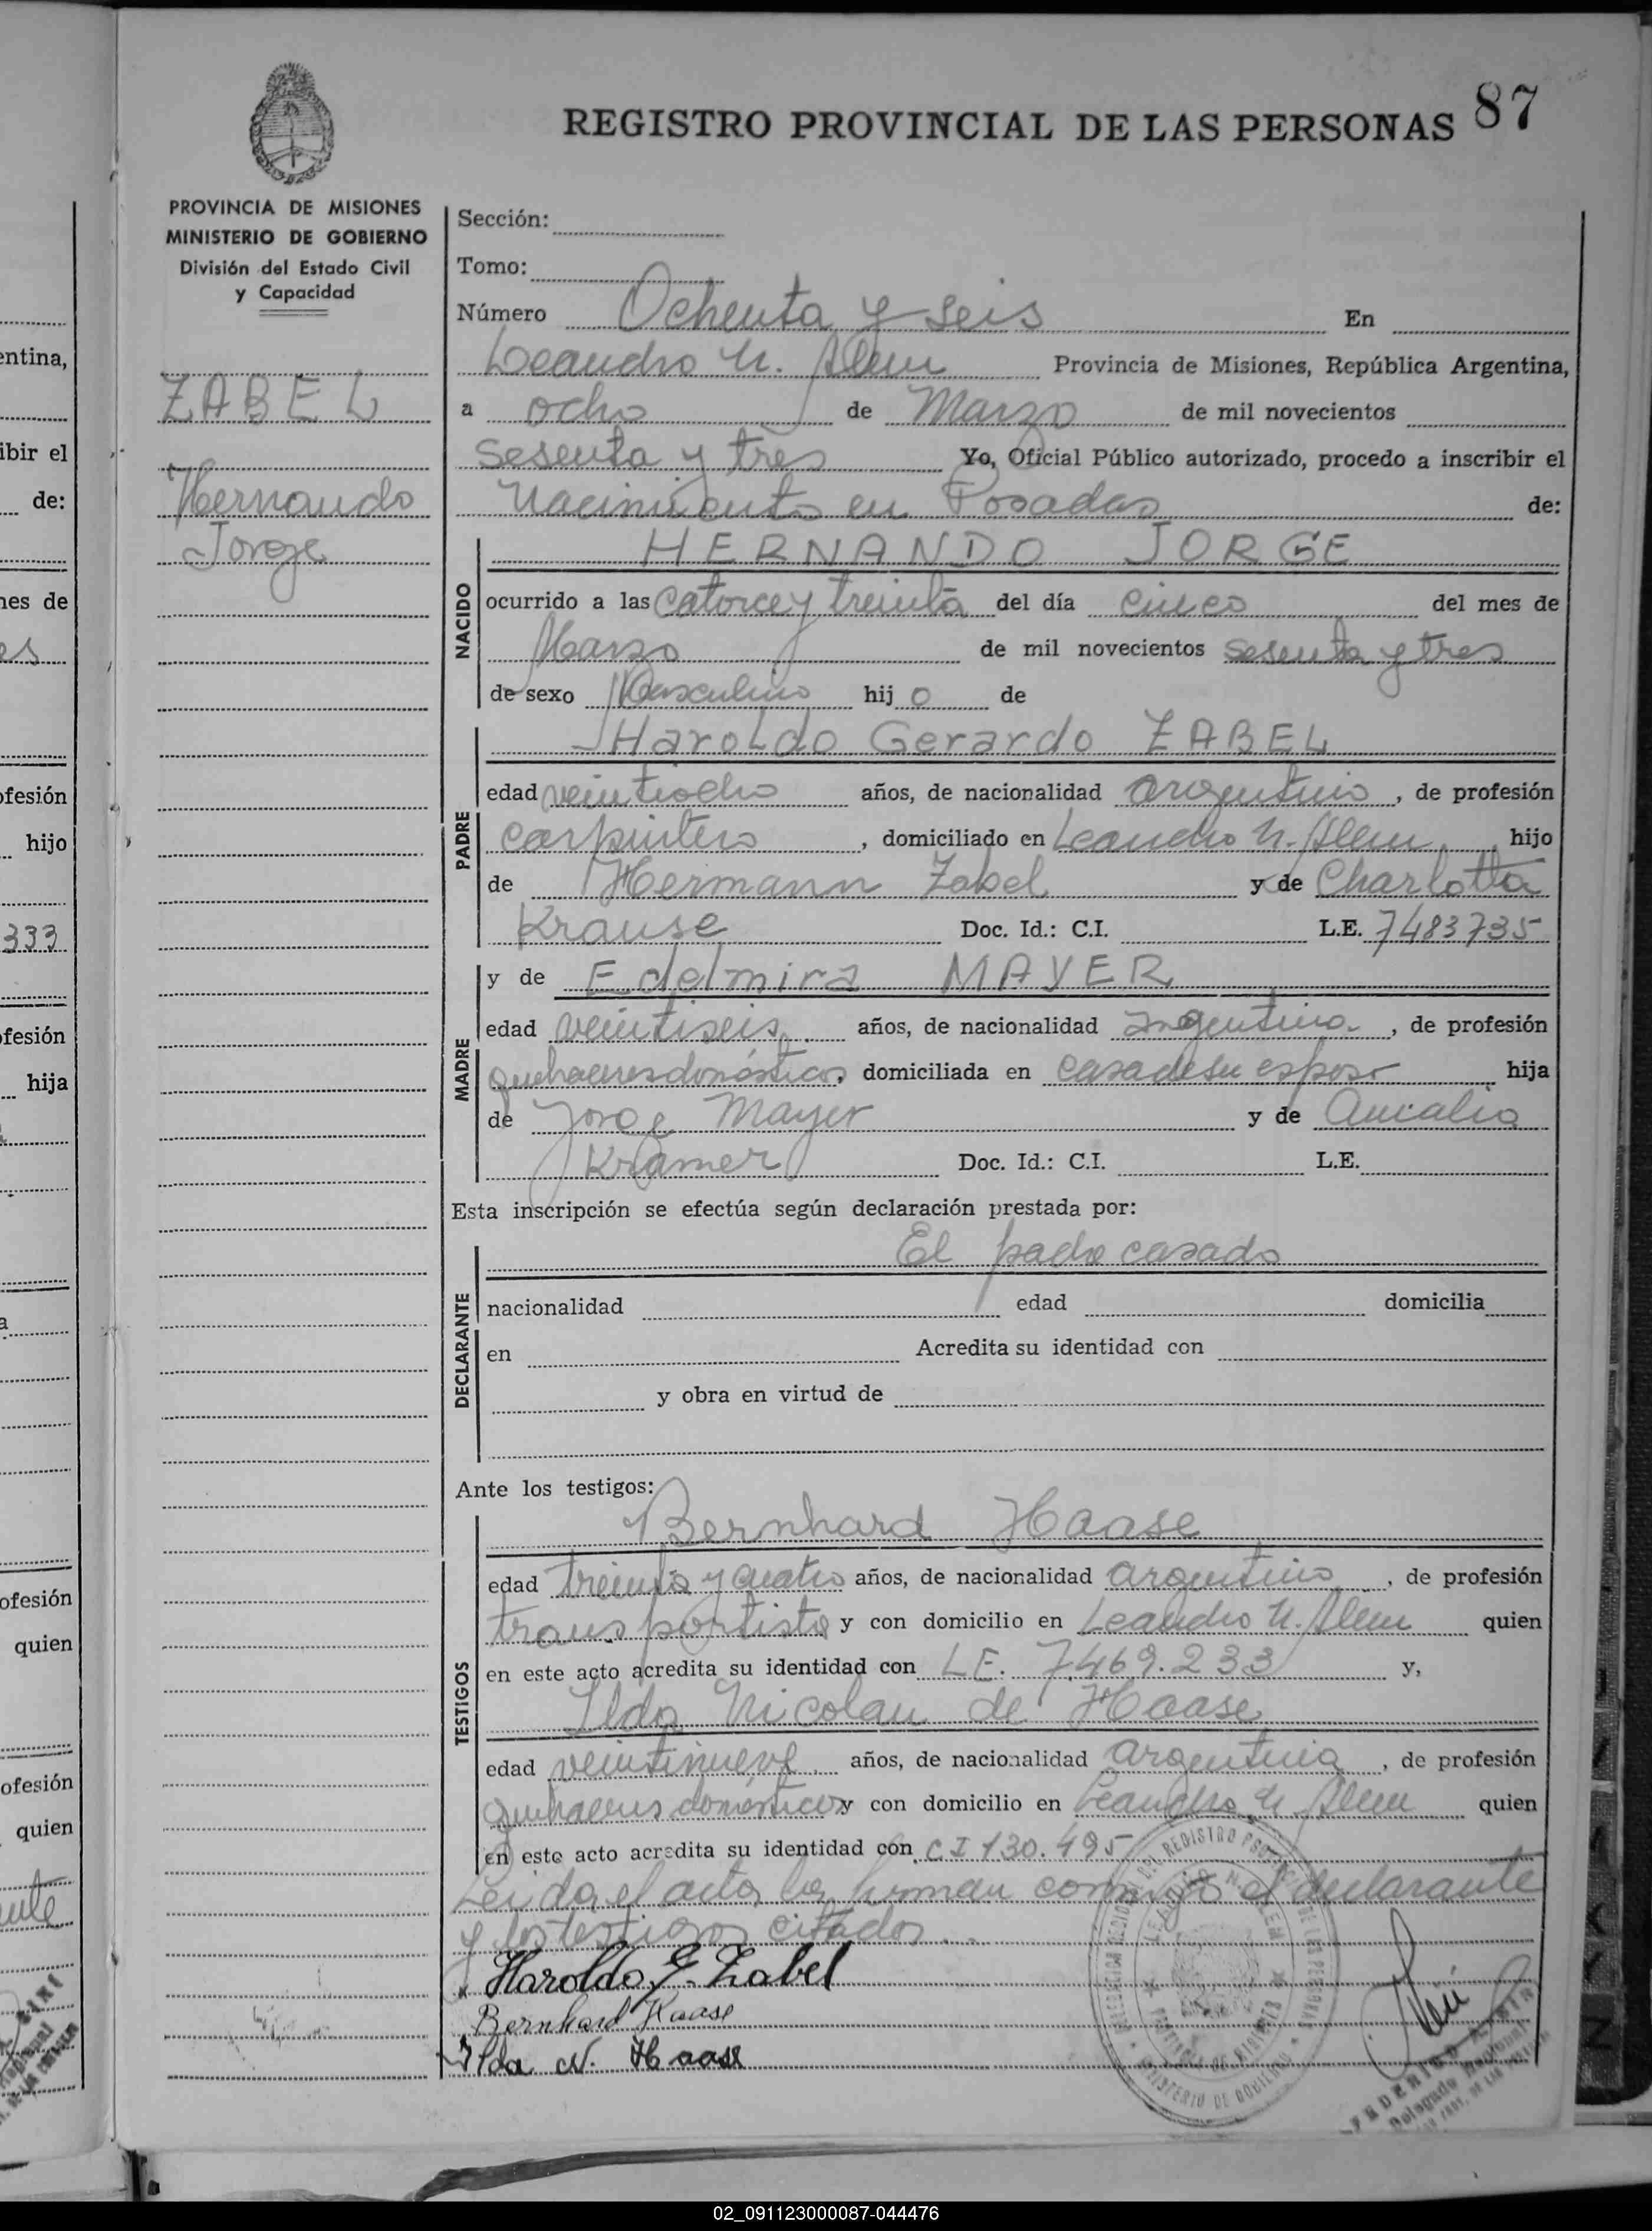 REGISTRO PROVINCIAL DE LAS PERSONAS 87
PROVINCIA DE MISIONES
MINISTERIO DE GOBIERNO
División del Estado Civil
y Capacidad
ZABEL
Hernando
Jorge
Sección:
Tomo:
Número Ochenta y seis En
Leandro N. Alem Provincia de Misiones, República Argentina,
a ocho de Marzo de mil novecientos
sesenta y tres Yo, Oficial Público autorizado, procedo a inscribir el
Nacimiento en Posadas de:
NACIDO
HERNANDO JORGE
ocurrido a las catorce y treinta del día cinco del mes de
Marzo de mil novecientos sesenta y tres
de sexo Masculino hijo de
PADRE
Haroldo Gerardo ZABEL
edad veintiocho años, de nacionalidad argentino, de profesión
carpintero, domiciliado en Leandro N. Alem, hijo
de Hermann Zabel y de Charlotta
Krause Doc. Id.: C.I. L.E. 7483735
MADRE
y de Edelmira MAYER
edad veintiseis años, de nacionalidad argentina, de profesión
quehaceres domésticos, domiciliada en casa de su esposo hija
de Jorge Mayer y de Amalia
Kramer Doc. Id.: C.I. L.E.
Esta inscripción se efectúa según declaración prestada por:
DECLARANTE
El padre casado
nacionalidad edad domicilia
en Acredita su identidad con
y obra en virtud de
Ante los testigos:
TESTIGOS
Bernhard Haase
edad treinta y cuatro años, de nacionalidad argentino, de profesión
transportista y con domicilio en Leandro N. Alem quien
en este acto acredita su identidad con L.E. 7.469.233 y,
Ilda Nicolau de Haase
edad veintinueve años, de nacionalidad argentina, de profesión
quehaceres domésticos y con domicilio en Leandro N. Alem quien
en este acto acredita su identidad con C I 130.495
Leida el acta, la firman conmigo el declarante
y los testigos citados..
Haroldo G. Zabel
Bernhard Haase
Ilda N. Haase
02_091123000087-044476